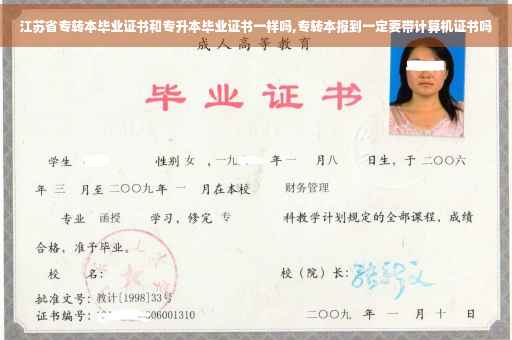 江苏省专转本毕业证书和专升本毕业证书一样吗,专转本报到一定要带计算机证书吗
成人高等教育
毕业证书
学生 性别 女 ,一九 年一 月八 日生,于二〇〇六
年 三 月至二〇〇九年 一 月在本校 财务管理
专业 函授 学习,修完 专 科教学计划规定的全部课程,成绩
合格,准予毕业。
校 名: 校(院)长:
批准文号:教计[1998]33号
证书编号: 06001310 二〇〇九 年 一 月 十 日